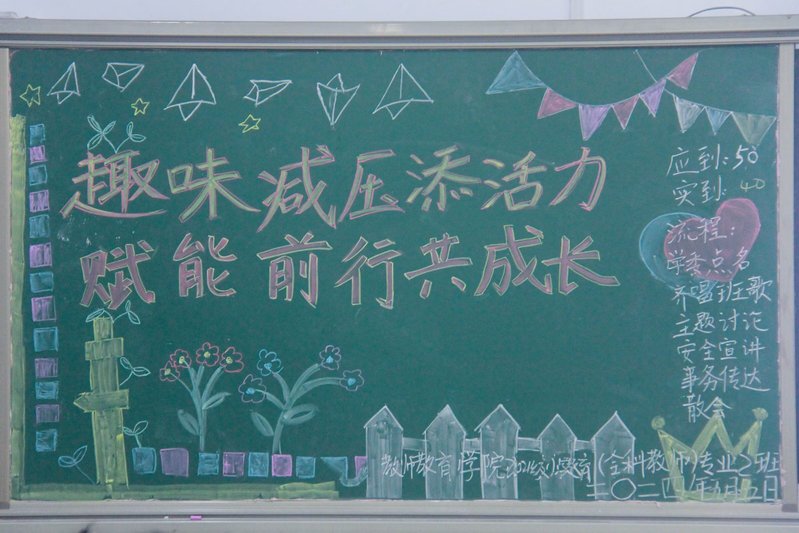 趣味减压添活力
赋能前行共成长
应到:50
实到:40
流程:
学委点名
齐唱班歌
主题讨论
安全宣讲
事务传达
散会
教师教育学院 小学教育(全科教师)专业2班
二〇二四年九月二日